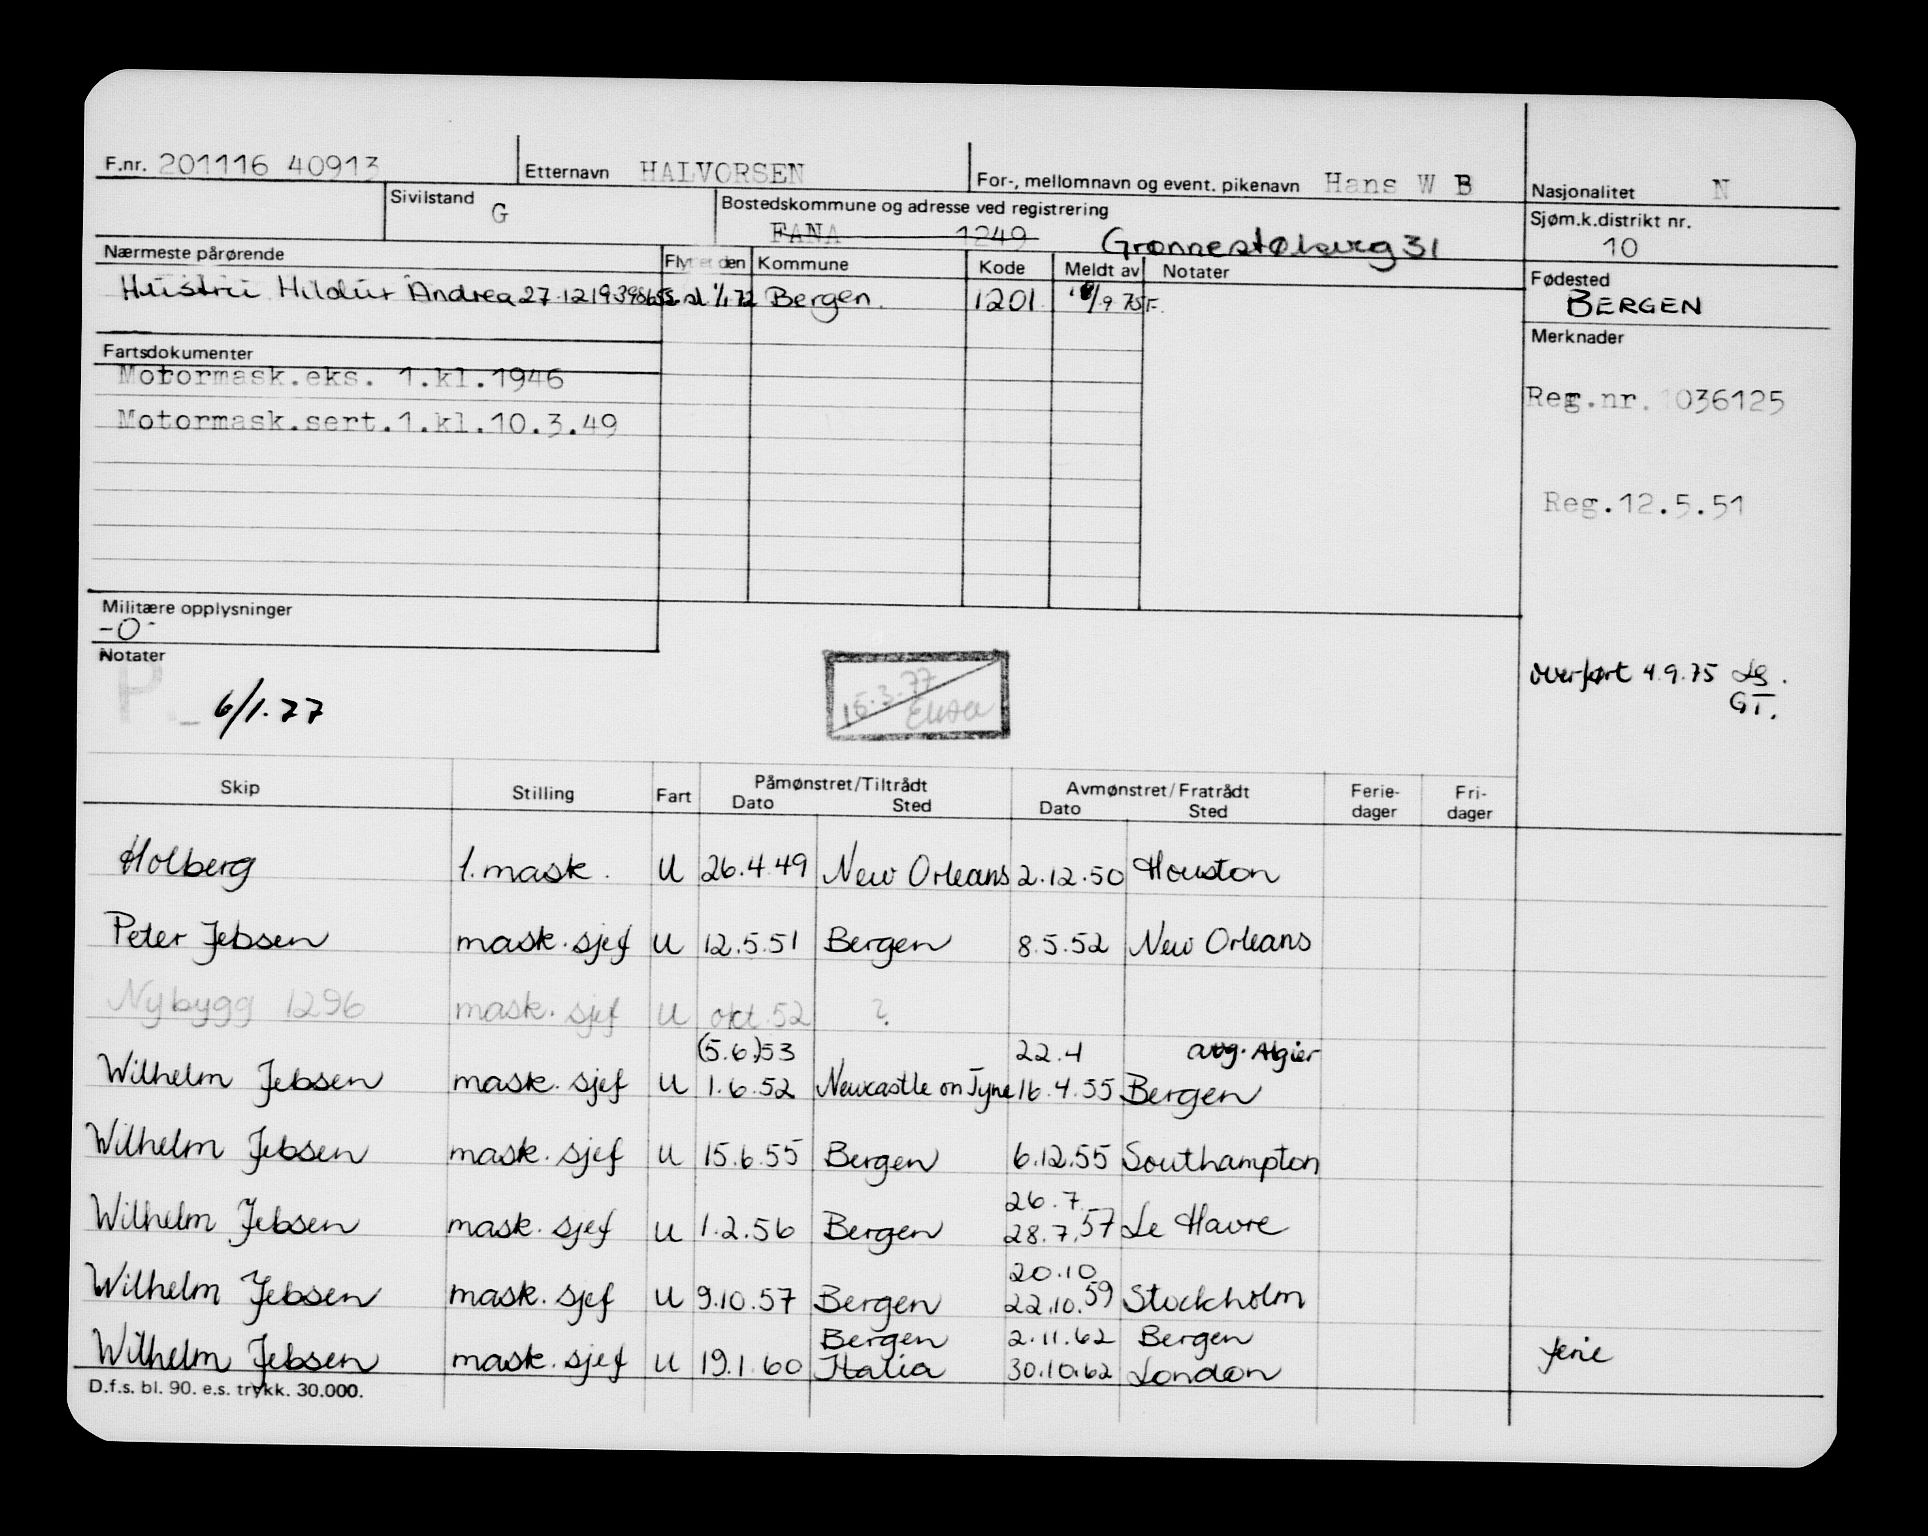 F.nr. 201116 40913 Etternavn HALVORSEN For-, mellomnavn og event. pikenavn Hans W B Nasjonalitet N
Sivilstand G Bostedskommune og adresse ved registrering Sjøm.k.distrikt nr.
FANA 1249 Grønnestølsveg 31 10
Nærmeste pårørende Flyttet den Kommune Kode Meldt av Notater Fødested
Hustru Hildur Andrea 27.12.19 1/1 72 Bergen. 1201 /9 75 F. BERGEN
Merknader
Fartsdokumenter
Motormask.eks. 1.kl.1946 Reg.nr. 1036125
Motormask.sert.1.kl.10.3.49
Reg.12.5.51
Militære opplysninger
-0-
Notater
P - 6/1.77 15.3.77 overført 4.9.75
GT.
Skip Stilling Fart Påmønstret/Tiltrådt Avmønstret/Fratrådt Ferie- Fri-
Dato Sted Dato Sted dager dager
Holberg 1. mask. U 26.4.49 New Orleans 2.12.50 Houston
Peter Jebsen mask. sjef U 12.5.51 Bergen 8.5.52 New Orleans
Nybygg 1296 mask. sjef U okt. 52 ?
(5.6)53 22.4 avg. Algier
Wilhelm Jebsen mask. sjef U 1.6.52 Newcastle on Tyne 16.4.55 Bergen
Wilhelm Jebsen mask. sjef U 15.6.55 Bergen 6.12.55 Southampton
26.7.
Wilhelm Jebsen mask. sjef U 1.2.56 Bergen 28.7.57 Le Havre
20.10
Wilhelm Jebsen mask. sjef U 9.10.57 Bergen 22.10.59 Stockholm
Bergen 2.11.62 Bergen
Wilhelm Jebsen mask. sjef U 19.1.60 Italia 30.10.62 London ferie
D.f.s. bl. 90. e.s. trykk. 30.000.